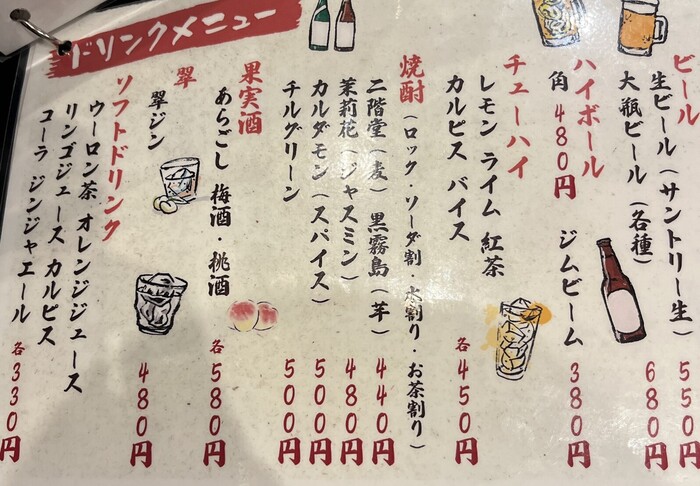 ドリンクメニュー
ビール
生ビール(サントリー生) 550円
大瓶ビール(各種) 680円
ハイボール
角 480円 ジムビーム 380円
チューハイ
レモン ライム 紅茶
カルピス バイス 各450円
焼酎(ロック・ソーダ割・水割り・お茶割り)
二階堂(麦) 黒霧島(芋) 440円
茉莉花(ジャスミン) 480円
カルダモン(スパイス) 500円
チルグリーン 500円
果実酒
あらごし 梅酒・桃酒 各580円
翠
翠ジン 480円
ソフトドリンク
ウーロン茶 オレンジジュース
リンゴジュース カルピス
コーラ ジンジャエール 各330円